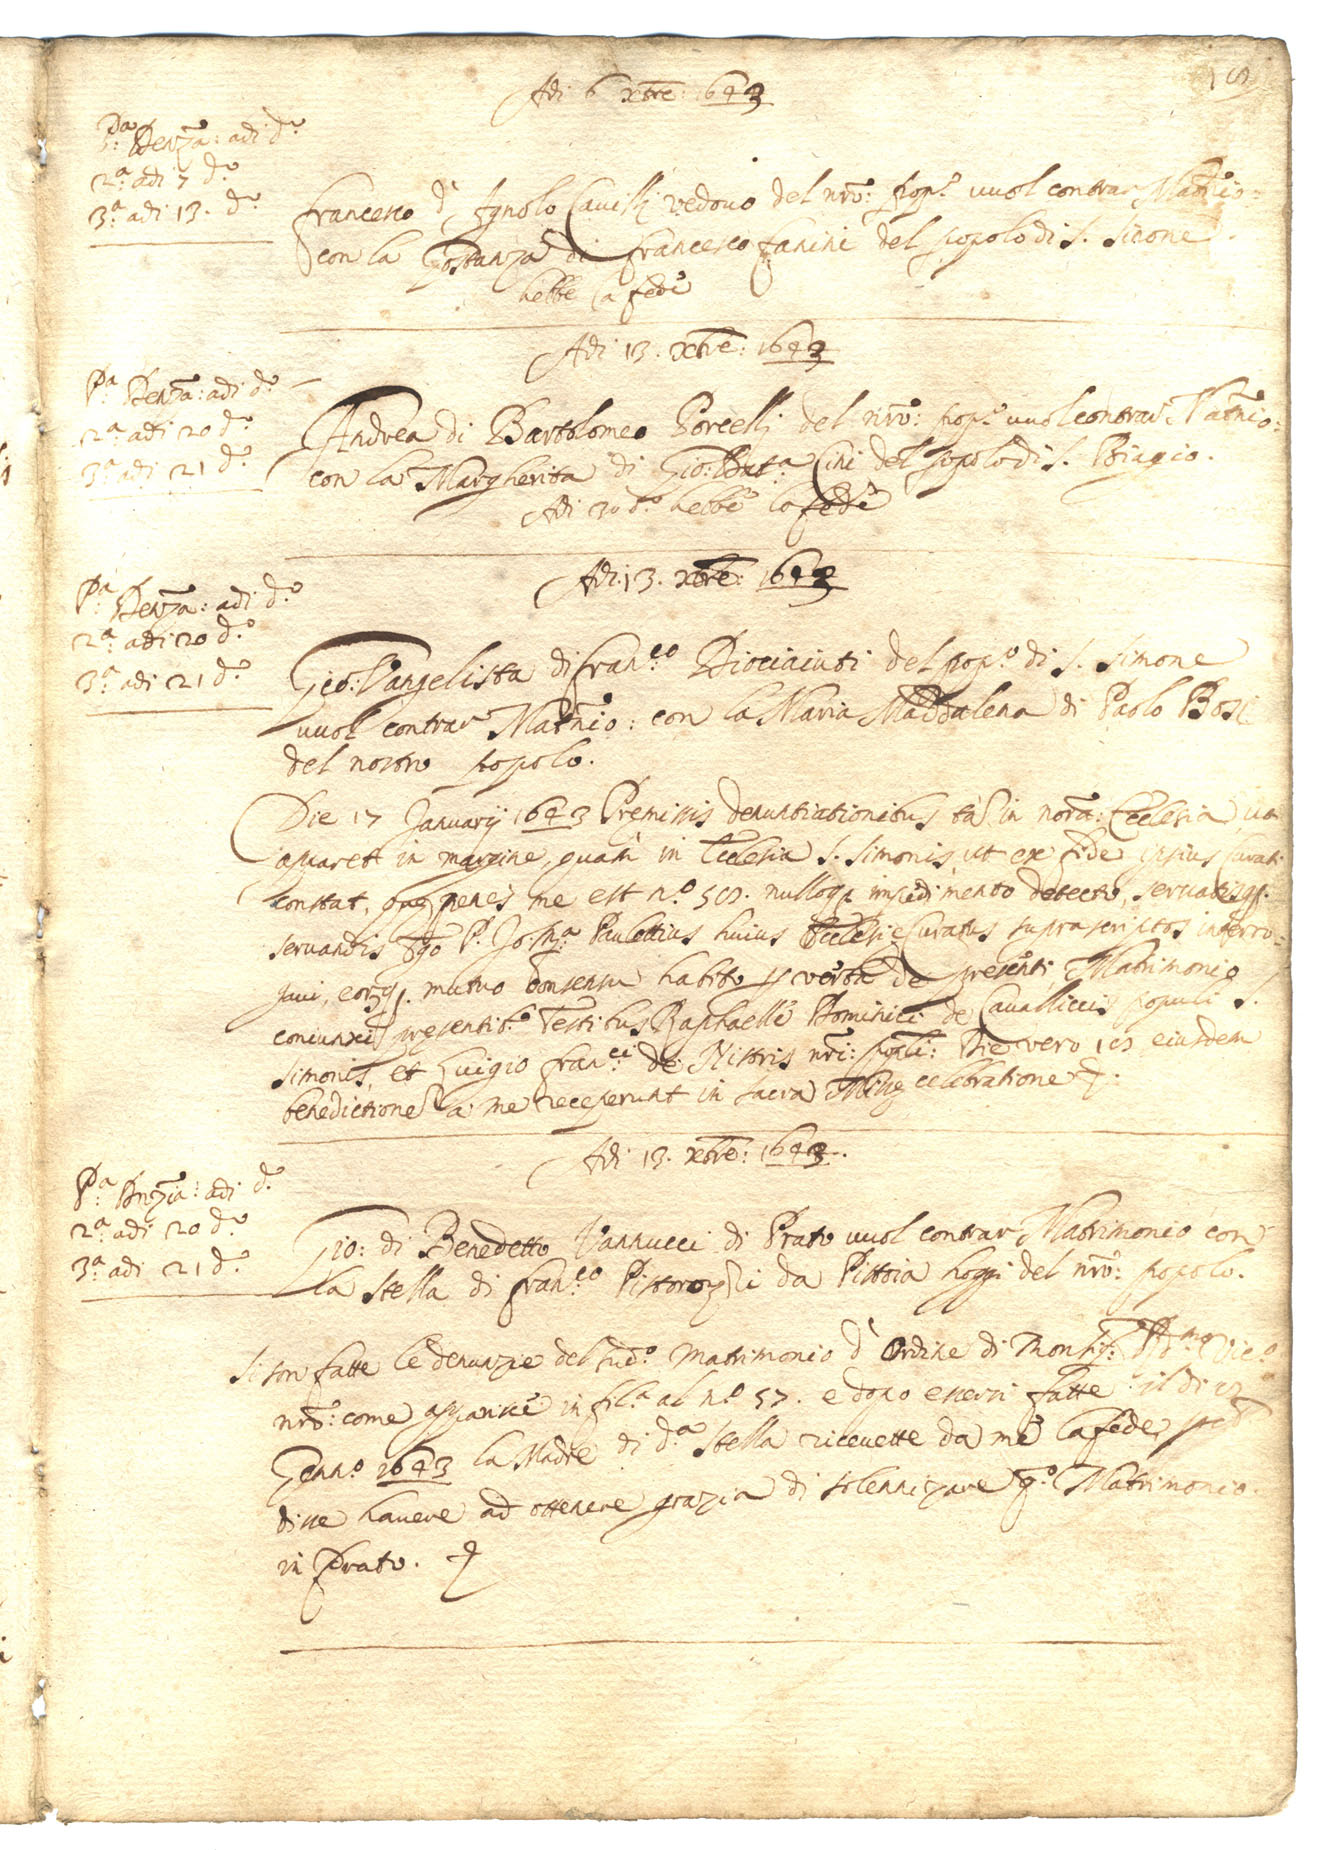 Adi 6 xbre: 1643
Pa: Denza: adi do
2a: adi 7 do
3a: adi 13. do
francesco d'Agnolo Cavilli vedovo del nro: popo vuol contrar Matrio:
con la Gostanza di francesco fanini del popolo di S. Simone.
hebbe la fede
Adi 13. xbre: 1643
Pa: Denza: adi do
2a: adi 20 do
3a: adi 21 do
Andrea di Bartolomeo Porcelli del nro: popo vuol contrar Matrio:
con la Margherita di Gio: Bata Cini del popolo di S. Biagio.
Adi 30 do hebbe la fede
Adi. 13. xbre: 1643
Pa: Denza: adi do
2a: adi 20 do
3a: adi 21 do
Gio: Vangelista di franco Diociaiuti del popo di S. Simone
vuol contrar Matrio: con la Maria Maddalena di Paolo Bosi
del nostro popolo.
Die 17 Januarij 1643 Premissis denuntiationibus tam in nora: Ecclesia, ut
apparet in margine, quam in Ecclesia S. Simonis, ut ex fide ipsius Curati
constat, que penes me est no. nulloq; impedimento detecto, servatisq;
servandis Ego P. Jo: Bta Paulettius huius Ecclesie Curatus suprascriptos interro=
gavi, eorq; mutuo consensu habito p verba de presenti, Matrimonio
coniunxi presentibs Testibus Raphaelle Dominici de Cavalliccis populi S.
Simonis, et Luigio franci de Nistris nri: popli: Die vero eiusdem
benedictione a me receperunt in sacra Misse celebratione
Adi 13. xbre: 1643.
Pa: Dnzia: adi do
2a: adi 20 do
3a: adi 21 do
Gio: di Benedetto Vannucci di Prato vuol contrar Matrimonio con
la Stella di franco da Pistoia hoggi del nro: popolo.
Si son fatte le denunzie del sudo: Matrimonio d'Ordine di Monsigr: Vico
nro: come apparisce in fila al no 57. e dopo essersi fatte il di
Genno 1643 la Madre di da Stella ricevette da me la fede, per
disse havere ad ottenere grazia di solennizare qo Matrimonio
in Prato.